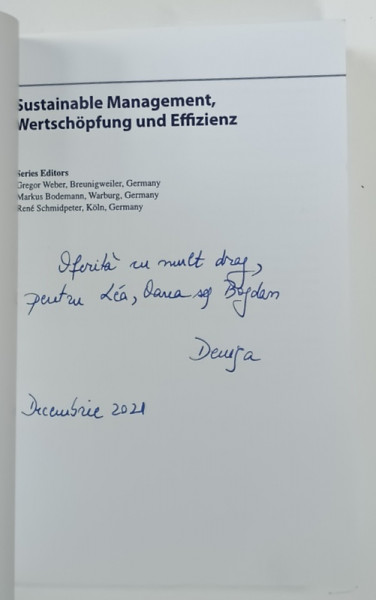 Sustainable Management,
Wertschöpfung und Effizienz
Series Editors
Gregor Weber, Breunigweiler, Germany
Markus Bodemann, Warburg, Germany
René Schmidpeter, Köln, Germany
Oferită cu mult drag,
pentru Léa, Oana și Bogdan
Decembrie 2021